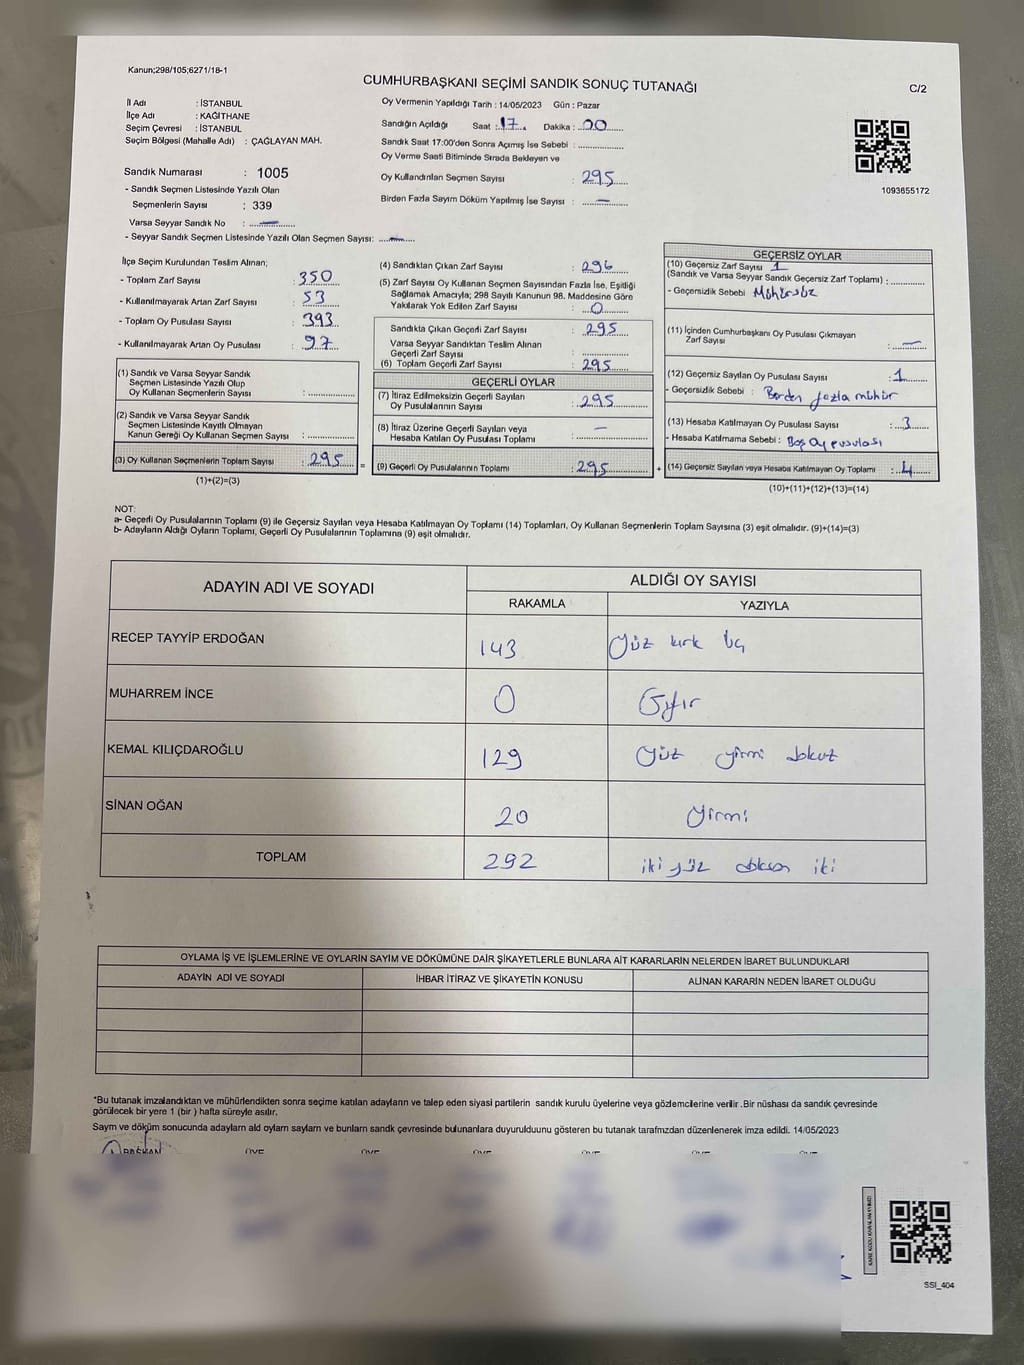 Kanun;298/105;6271/18-1
CUMHURBAŞKANI SEÇİMİ SANDIK SONUÇ TUTANAĞI
C/2
İl Adı : İSTANBUL
İlçe Adı : KAĞITHANE
Seçim Çevresi : İSTANBUL
Seçim Bölgesi (Mahalle Adı) : ÇAĞLAYAN MAH.
Sandık Numarası : 1005
- Sandık Seçmen Listesinde Yazılı Olan
Seçmenlerin Sayısı : 339
Varsa Seyyar Sandık No : —
- Seyyar Sandık Seçmen Listesinde Yazılı Olan Seçmen Sayısı: —
Oy Vermenin Yapıldığı Tarih : 14/05/2023 Gün : Pazar
Sandığın Açıldığı Saat : 17 Dakika : 00
Sandık Saat 17:00'den Sonra Açımış İse Sebebi :
Oy Verme Saati Bitiminde Sırada Bekleyen ve
Oy Kullandırılan Seçmen Sayısı : 295
Birden Fazla Sayım Döküm Yapılmış İse Sayısı : —
1093655172
İlçe Seçim Kurulundan Teslim Alınan;
- Toplam Zarf Sayısı : 350
- Kullanılmayarak Artan Zarf Sayısı : 53
- Toplam Oy Pusulası Sayısı : 393
- Kullanılmayarak Artan Oy Pusulası : 97
(1) Sandık ve Varsa Seyyar Sandık
Seçmen Listesinde Yazılı Olup
Oy Kullanan Seçmenlerin Sayısı :
(2) Sandık ve Varsa Seyyar Sandık
Seçmen Listesinde Kayıtlı Olmayan
Kanun Gereği Oy Kullanan Seçmen Sayısı :
(3) Oy Kullanan Seçmenlerin Toplam Sayısı : 295
(1)+(2)=(3)
=
(4) Sandıktan Çıkan Zarf Sayısı : 296
(5) Zarf Sayısı Oy Kullanan Seçmen Sayısından Fazla İse, Eşitliği
Sağlamak Amacıyla; 298 Sayılı Kanunun 98. Maddesine Göre
Yakılarak Yok Edilen Zarf Sayısı : 0
Sandıkta Çıkan Geçerli Zarf Sayısı : 295
Varsa Seyyar Sandıktan Teslim Alınan
Geçerli Zarf Sayısı :
(6) Toplam Geçerli Zarf Sayısı : 295
GEÇERLİ OYLAR
(7) İtiraz Edilmeksizin Geçerli Sayılan
Oy Pusulalarının Sayısı : 295
(8) İtiraz Üzerine Geçerli Sayılan veya
Hesaba Katılan Oy Pusulası Toplamı : —
(9) Geçerli Oy Pusulalarının Toplamı : 295
+
GEÇERSİZ OYLAR
(10) Geçersiz Zarf Sayısı 1
(Sandık ve Varsa Seyyar Sandık Geçersiz Zarf Toplamı) :
- Geçersizlik Sebebi Mühürsüz
(11) İçinden Cumhurbaşkanı Oy Pusulası Çıkmayan
Zarf Sayısı : —
(12) Geçersiz Sayılan Oy Pusulası Sayısı : 1
- Geçersizlik Sebebi : Birden fazla mühür
(13) Hesaba Katılmayan Oy Pusulası Sayısı : 3
- Hesaba Katılmama Sebebi : Boş oy pusulası
(14) Geçersiz Sayılan veya Hesaba Katılmayan Oy Toplamı : 4
(10)+(11)+(12)+(13)=(14)
NOT:
a- Geçerli Oy Pusulalarının Toplamı (9) ile Geçersiz Sayılan veya Hesaba Katılmayan Oy Toplamı (14) Toplamları, Oy Kullanan Seçmenlerin Toplam Sayısına (3) eşit olmalıdır. (9)+(14)=(3)
b- Adayların Aldığı Oyların Toplamı, Geçerli Oy Pusulalarının Toplamına (9) eşit olmalıdır.
ADAYIN ADI VE SOYADI
ALDIĞI OY SAYISI
RAKAMLA YAZIYLA
RECEP TAYYİP ERDOĞAN 143 Yüz kırk üç
MUHARREM İNCE 0 Sıfır
KEMAL KILIÇDAROĞLU 129 Yüz yirmi dokuz
SİNAN OĞAN 20 Yirmi
TOPLAM 292 iki yüz doksan iki
OYLAMA İŞ VE İŞLEMLERİNE VE OYLARIN SAYIM VE DÖKÜMÜNE DAİR ŞİKAYETLERLE BUNLARA AİT KARARLARIN NELERDEN İBARET BULUNDUKLARI
ADAYIN ADI VE SOYADI İHBAR İTİRAZ VE ŞİKAYETİN KONUSU ALINAN KARARIN NEDEN İBARET OLDUĞU
*Bu tutanak imzalandıktan ve mühürlendikten sonra seçime katılan adayların ve talep eden siyasi partilerin sandık kurulu üyelerine veya gözlemcilerine verilir .Bir nüshası da sandık çevresinde
görülecek bir yere 1 (bir ) hafta süreyle asılır.
Sayım ve döküm sonucunda adayların ald oyların sayların ve bunların sandk çevresinde bulunanlara duyurulduunu gösteren bu tutanak tarafmzdan düzenlenerek imza edildi. 14/05/2023
BAŞKAN ÜYE ÜYE ÜYE ÜYE ÜYE ÜYE
SSI_404